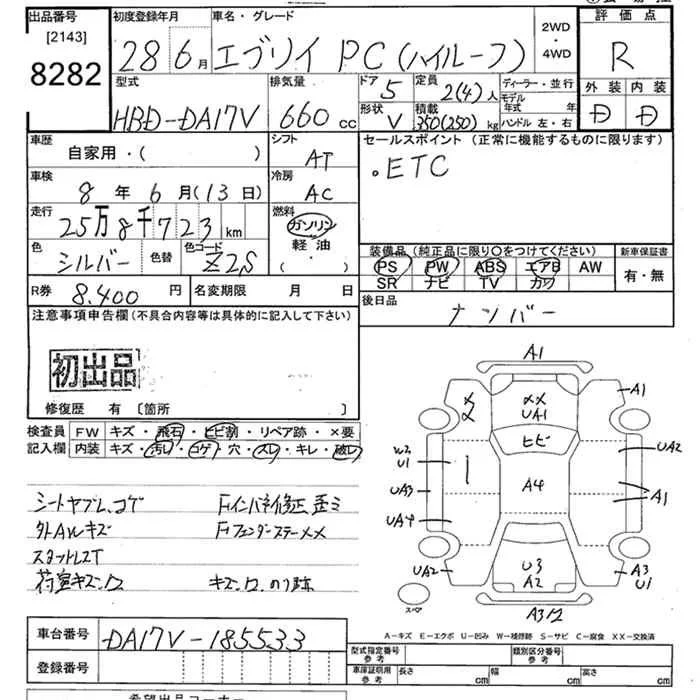 出品番号 初度登録年月 車名・グレード 2WD・4WD 評価点
[2143] 8282
28 6月 エブリイ PC(ハイルーフ) R
型式 排気量 ドア 5 定員 2(4)人 ディーラー・並行 外装 内装
HBD-DA17V 660cc 形状 V 積載 350(250)kg モデル年式 年 ハンドル 左・右 D D
車歴 シフト セールスポイント (正常に機能するものに限ります)
自家用・( ) AT ・ETC
車検 冷房
8年 6月(13日) AC
走行 燃料
25万8千723km ガソリン
軽油
色 色替 色コード 装備品(純正品に限り○をつけてください) 新車保証書
シルバー Z2S ( ・ ) PS PW ABS エアB AW 有・無
SR ナビ TV カワ
R券 8.400円 名変期限 月 日 後日品 ナンバー
注意事項申告欄(不具合内容等は具体的に記入して下さい)
初出品
修復歴 有 [箇所 ]
検査員 FW キズ・飛石・ヒビ割・リペア跡・×要
記入欄 内装 キズ・汚レ・コゲ・穴・スレ・キレ・破レ
シートヤブレ、コゲ
外AWキズ
荷室キズ、
A1
A1
XX
XX
UA1
ヒビ
W2
U1
UA2
UA3
A4
A1
UA4
UA2
U3
A2
A3
U1
スペア
A-キズ E-エクボ U-凹み W-補修跡 S-サビ C-腐食 XX-交換済
車台番号 DA17V-185533
型式指定番号 参考 類別区分番号 参考
登録番号 車庫証明用 参考 長さ cm 幅 cm 高さ cm
希望出品コーナー